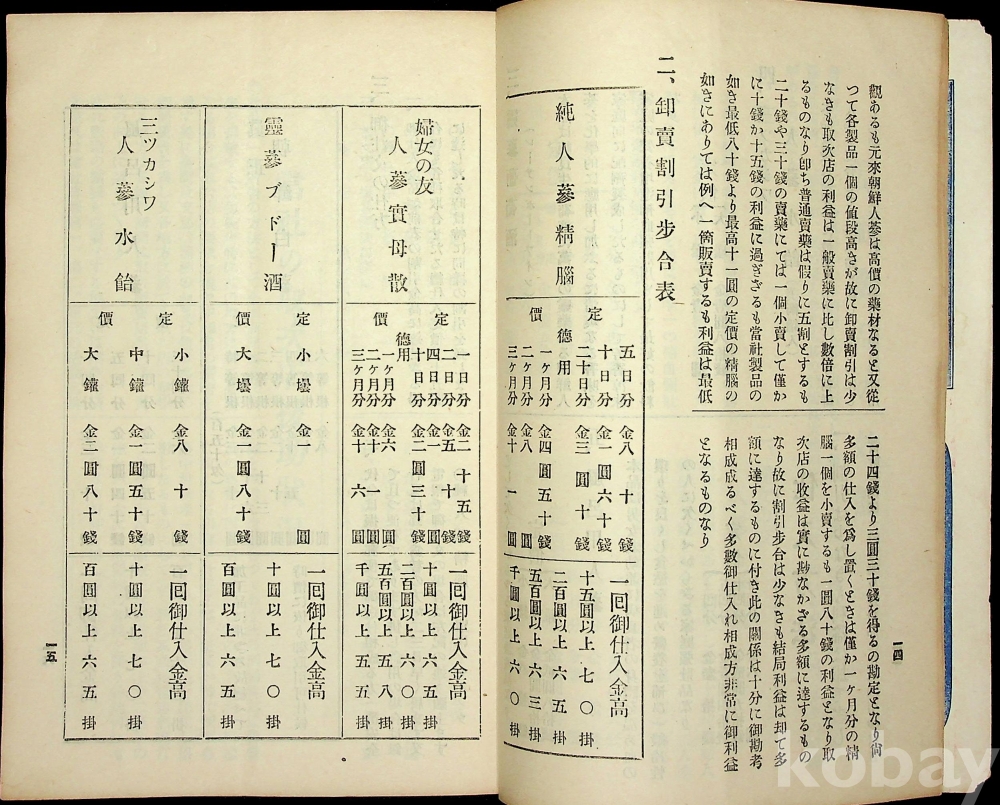 觀あるも元來朝鮮人蔘は高價の藥材なると又從
つて各製品一個の値段高きが故に卸賣割引は少
なきも取次店の利益は一般賣藥に比し數倍に上
るものなり卽ち普通賣藥は假りに五割とするも
二十錢や三十錢の賣藥にては一個小賣して僅か
に十錢か十五錢の利益に過ぎざるも當社製品の
如き最低八十錢より最高十一圓の定價の精腦の
如きにありては例へ一箇販賣するも利益は最低
二十四錢より三圓三十錢を得るの勘定となり尙
多額の仕入を爲し置くときは僅か一ヶ月分の精
腦一個を小賣するも一圓八十錢の利益となり取
次店の收益は實に尠なかざる多額に達するもの
なり故に割引步合は少なきも結局利益は却て多
額に達するものに付き此の關係は十分に御勘考
相成成るべく多數御仕入れ相成方非常に御利益
となるものなり
一四
二、卸賣割引步合表
純人蔘精腦
定價
五日分 金八十錢
十日分 金一圓六十錢
二十日分 金三圓十錢
德用
一ヶ月分 金四圓五十錢
二ヶ月分 金八圓
三ヶ月分 金十一圓
一回御仕入金高
十五圓以上 七〇掛
二百圓以上 六五掛
五百圓以上 六三掛
千圓以上 六〇掛
婦女の友
人蔘實母散
定價
一日分 金二十五錢
二日分 金五十錢
四日分 金一圓
十日分 金二圓三十錢
德用
一ヶ月分 金六圓
二ヶ月分 金十一圓
三ヶ月分 金十六圓
一回御仕入金高
十圓以上 六五掛
二百圓以上 六〇掛
五百圓以上 五八掛
千圓以上 五五掛
靈蔘ブドー酒
定價
小壜 金一圓
大壜 金一圓八十錢
一回御仕入金高
十圓以上 七〇掛
百圓以上 六五掛
三ツカシワ
人蔘水飴
定價
小鑵 金八十錢
中鑵 金一圓五十錢
大鑵 金二圓八十錢
一回御仕入金高
十圓以上 七〇掛
百圓以上 六五掛
一五
kobay